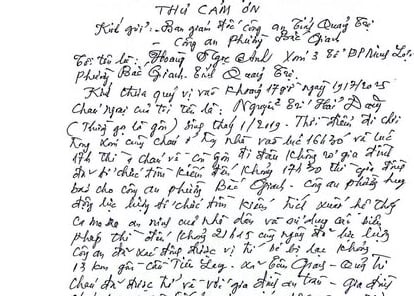 THƯ CẢM ƠN
Kính gửi: - Ban giám đốc công an Tỉnh Quảng Trị
- Công an Phường Bắc Gianh
Tôi tên là: Hoàng Ngọc Anh Xóm 3
Phường Bắc Gianh Tỉnh Quảng Trị.
Kính thưa quý vị vào khoảng 17 giờ ngày 19/7/2025
Cháu ngoại của tôi tên là: Nguyễn Hải Đăng
(Thường gọi là gôn) sinh tháng 1/2019. Thời điểm đi chơi
hàng xóm cùng cháu ở nhà vào lúc 16h30 và lúc
17h thì cháu và đi đâu không rõ gia đình
đã đi chốc tìm kiếm đến khoảng 17h30 thì gia đình
báo cho công an phường Bắc Gianh. Công an phường huy
động lực lượng đi chốc tìm kiếm trích xuất hệ thống
Camera an ninh của nhà dân và sử dụng các biện
pháp thì đến khoảng 21h45 cùng ngày đã lực lượng
Công an đã xác định được vị trí bé bị lạc khoảng
13 km gần cầu xã Quảng Trị
Cháu đã được đưa về với gia đình an toàn - gia đình